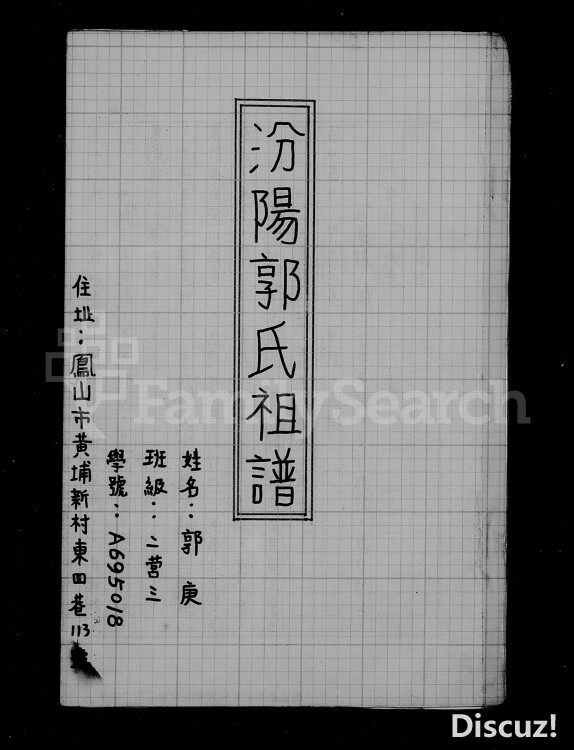 汾陽郭氏祖譜
姓名：郭庚
班級：二营三
學號：A695018
住址：鳳山市黃埔新村東四巷113
FamilySearch
Discuz!